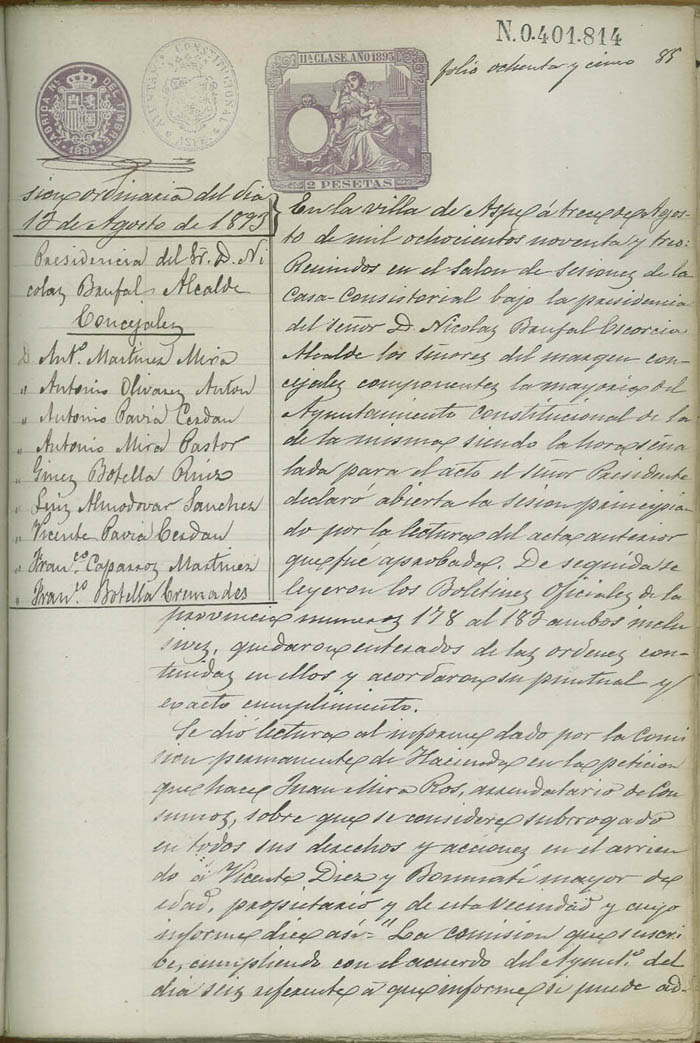 N.0.401.814
folio ochenta y cinco 85
FABRICA Nª DEL TIMBRE
1893
AYUNTAMIENTO CONSTITUCIONAL
ASPE
11ª CLASE, AÑO 1893
2 PESETAS
sion ordinaria del dia
13 de Agosto de 1893
Presidencia del Sr. D. Ni
colas Brufal Alcalde
Concejales
D. Antº. Martinez Mira
" Antonio Olivares Anton
" Antonio Pavia Cerdan
" Antonio Mira Pastor
" Gines Botella
" Luis Almodovar Sanchez
" Vicente Pavia Cerdan
" Franco. Caparros Martinez
" Franco. Botella Cremades
En la villa de Aspe á trece de Agos-
to de mil ochocientos noventa y tres:
Reunidos en el Salon de Sesiones de la
Casa-Consistorial bajo la presidencia
del señor D. Nicolas Brufal Escorcia
Alcalde los señores del margen con-
cejales componentes la mayoria del
Ayuntamiento constitucional de la
de la misma, siendo la hora seña
lada para el acto el señor Presidente
declaró abierta la sesion principian
do por la lectura del acta anterior
que fué aprobada. De seguida se
leyeron los Boletines Oficiales de la
provincia numeros 178 al 183 ambos inclu
sives, quedaron enterados de las ordenes con-
tenidas en ellos y acordaron su puntual y
exacto cumplimiento.
Se dió lectura al informe dado por la Comi
sion permanente de Hacienda en la peticion
que hace Juan Mira Ros, arrendatario de Con
sumos, sobre que se considere subrrogado
en todos sus derechos y acciones en el arrien
do á Vicente Diez y Bonmatí mayor de
edad, propietario y de esta vecindad y cuyo
informe dice asi= "La comision que suscri
be, cumpliendo con el acuerdo del Ayuntº. del
dia seis referente á que informe si puede ad-